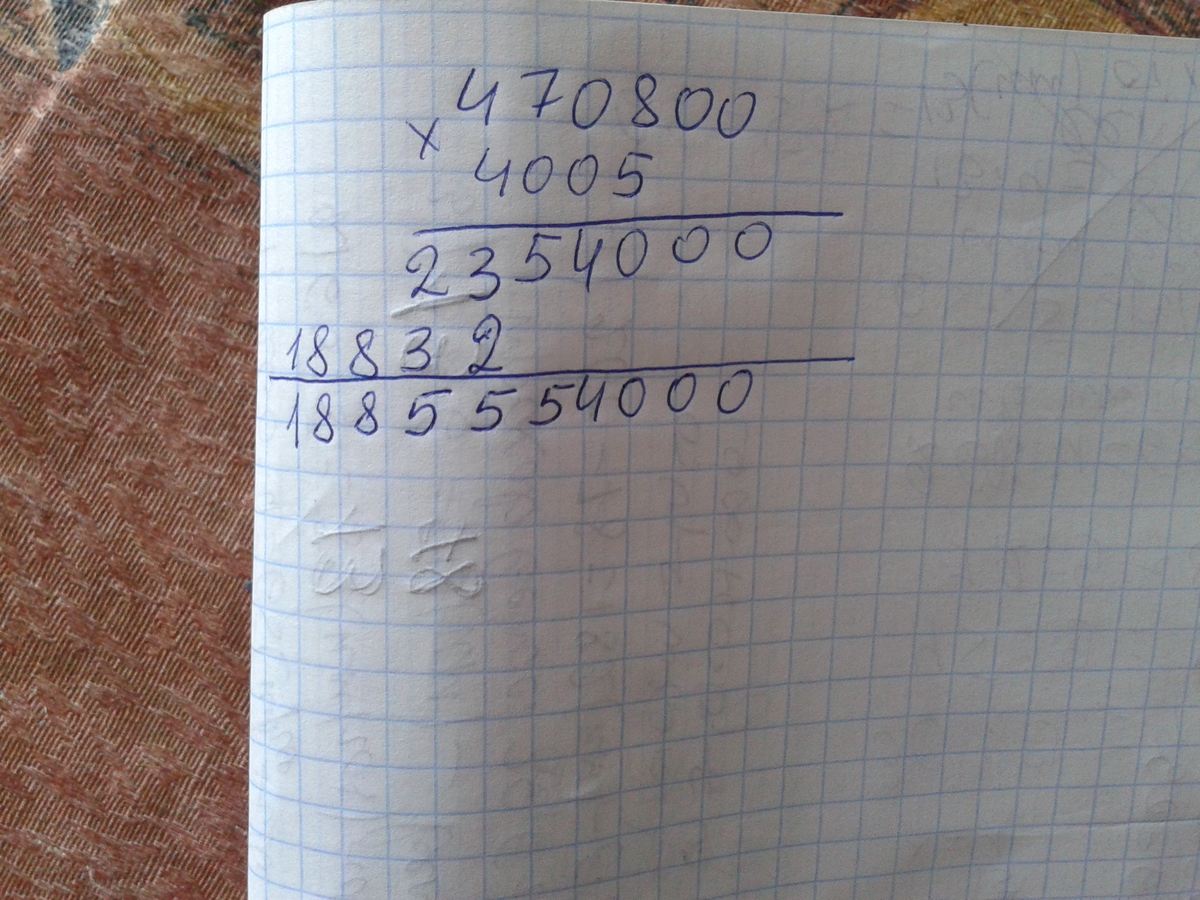 470800
×
4005
2354000
18832
1885554000